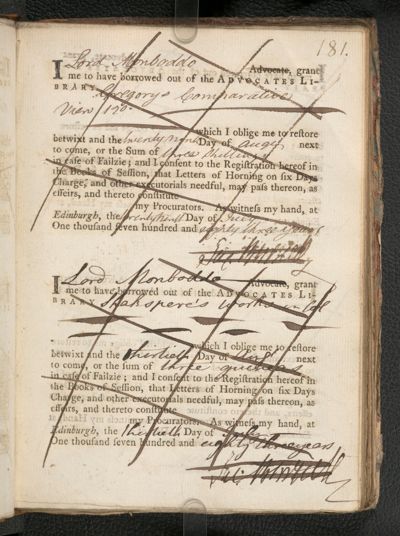 181.
I Lord Monboddo Advocate, grant
me to have borrowed out of the ADVOCATES LI-
BRARY Gregory's Comparative
View 12o.
which I oblige me to restore
betwixt and the twenty nine Day of augt next
to come, or the Sum of three shillings
in case of Failzie; and I consent to the Registration hereof in
the Books of Session, that Letters of Horning on six Days
Charge, and other executorials needful, may pass thereon, as
effeirs, and thereto constitute
my Procurators. As witness my hand, at
Edinburgh, the Day of July
One thousand seven hundred and eighty three years
I Lord Monboddo Advocate, grant
me to have borrowed out of the ADVOCATES LI-
BRARY Shakspere's Works
which I oblige me to restore
betwixt and the thirtieth Day of next
to come, or the sum of three guineas
in case of Failzie; and I consent to the Registration hereof in
the Books of Session, that Letters of Horning on six Days
Charge, and other executorials needful, may pass thereon, as
effeirs, and thereto constitute
my Procurators. As witness my hand, at
Edinburgh, the thirtieth Day of
One thousand seven hundred and eighty three years